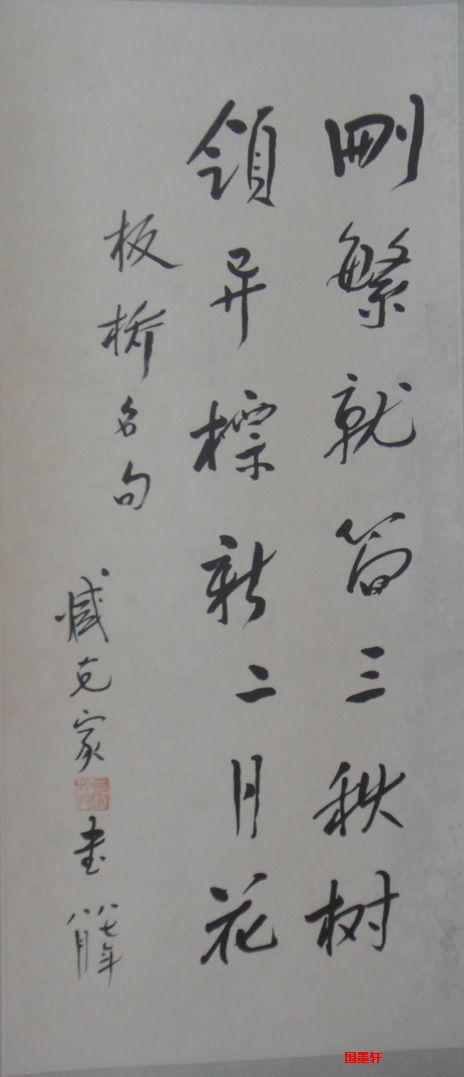 删繁就简三秋树
领异标新二月花
板桥名句
臧克家
书
八七年
八月
国墨轩